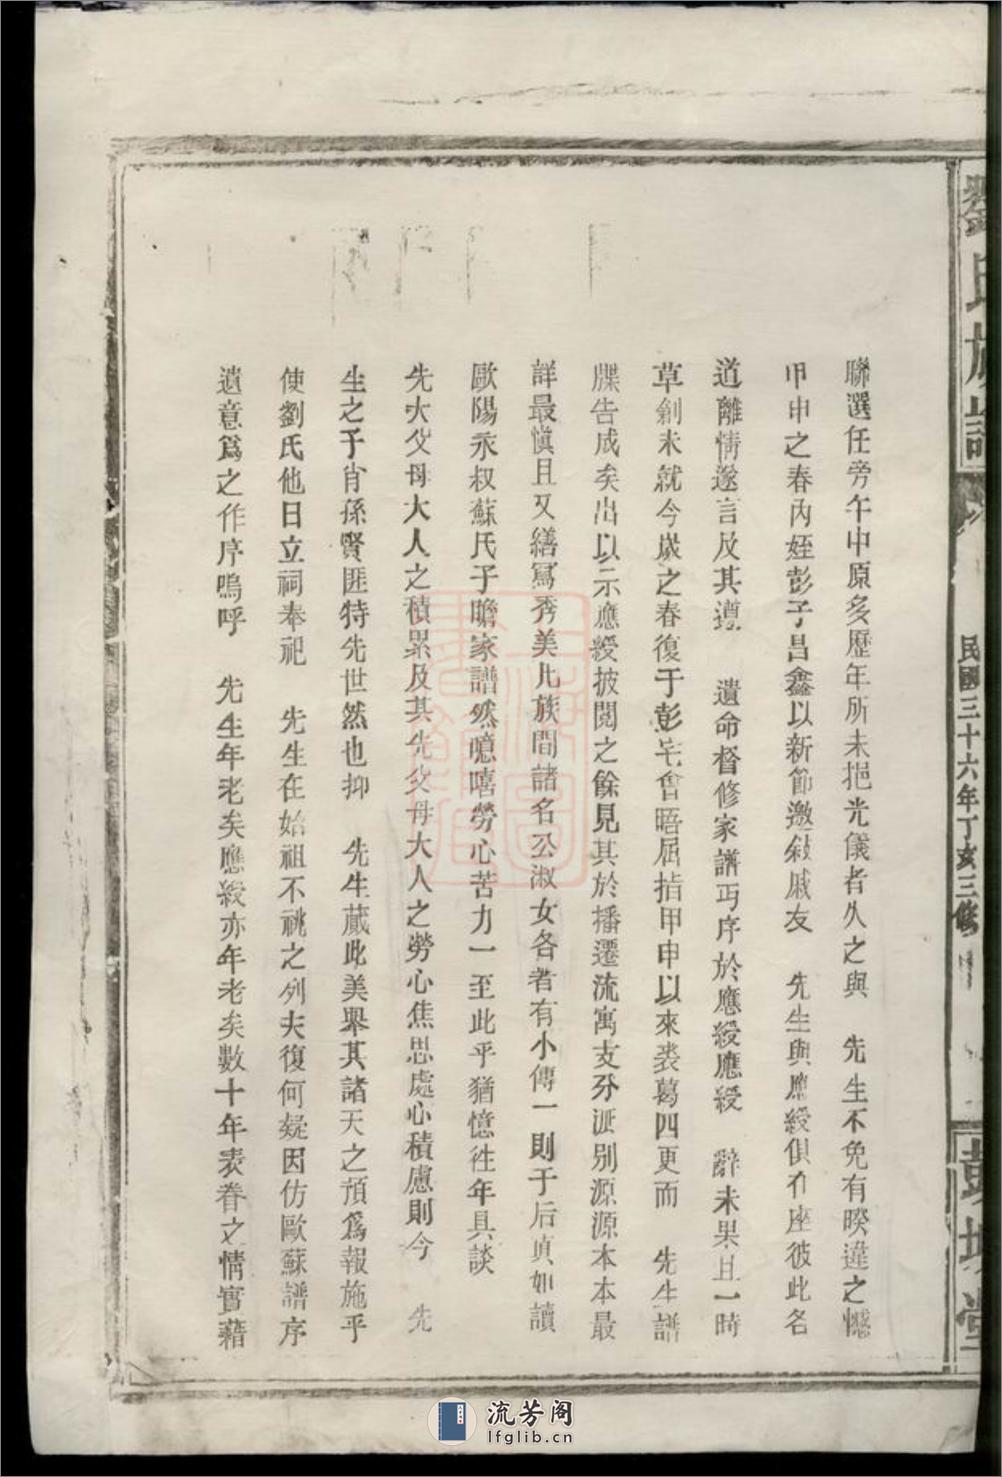 劉氏族譜
民國三十六年丁亥三修
彭城堂
聯選任旁午中原多歷年所未挹光儀者久之與 先生不免有暌違之憾
甲申之春內姪彭子昌鑫以新節邀敍戚友 先生與應綬俱在座彼此各
道離情遂言及其遵 遺命督修家譜丐序於應綬應綬 辭未果且一時
草創未就今歲之春復于彭宅會晤屈指甲申以來裘葛四更而 先生譜
牒告成矣出以示應綬披閱之餘見其於播遷流寓支分派別源源本本最
詳最慎且又繕寫秀美凡族間諸名公淑女各者有小傳一則于后真如讀
歐陽永叔蘇氏子瞻家譜然噫嘻勞心苦力一至此乎猶憶往年具談
先大父母大人之積累及其先父母大人之勞心焦思處心積慮則今 先
生之子肖孫賢匪特先世然也抑 先生蕆此美舉其諸天之預為報施乎
使劉氏他日立祠奉祀 先生在始祖不祧之列夫復何疑因仿歐蘇譜序
遺意爲之作序嗚呼 先生年老矣應綬亦年老矣數十年表眷之情實藉
流芳阁
lfglib.cn